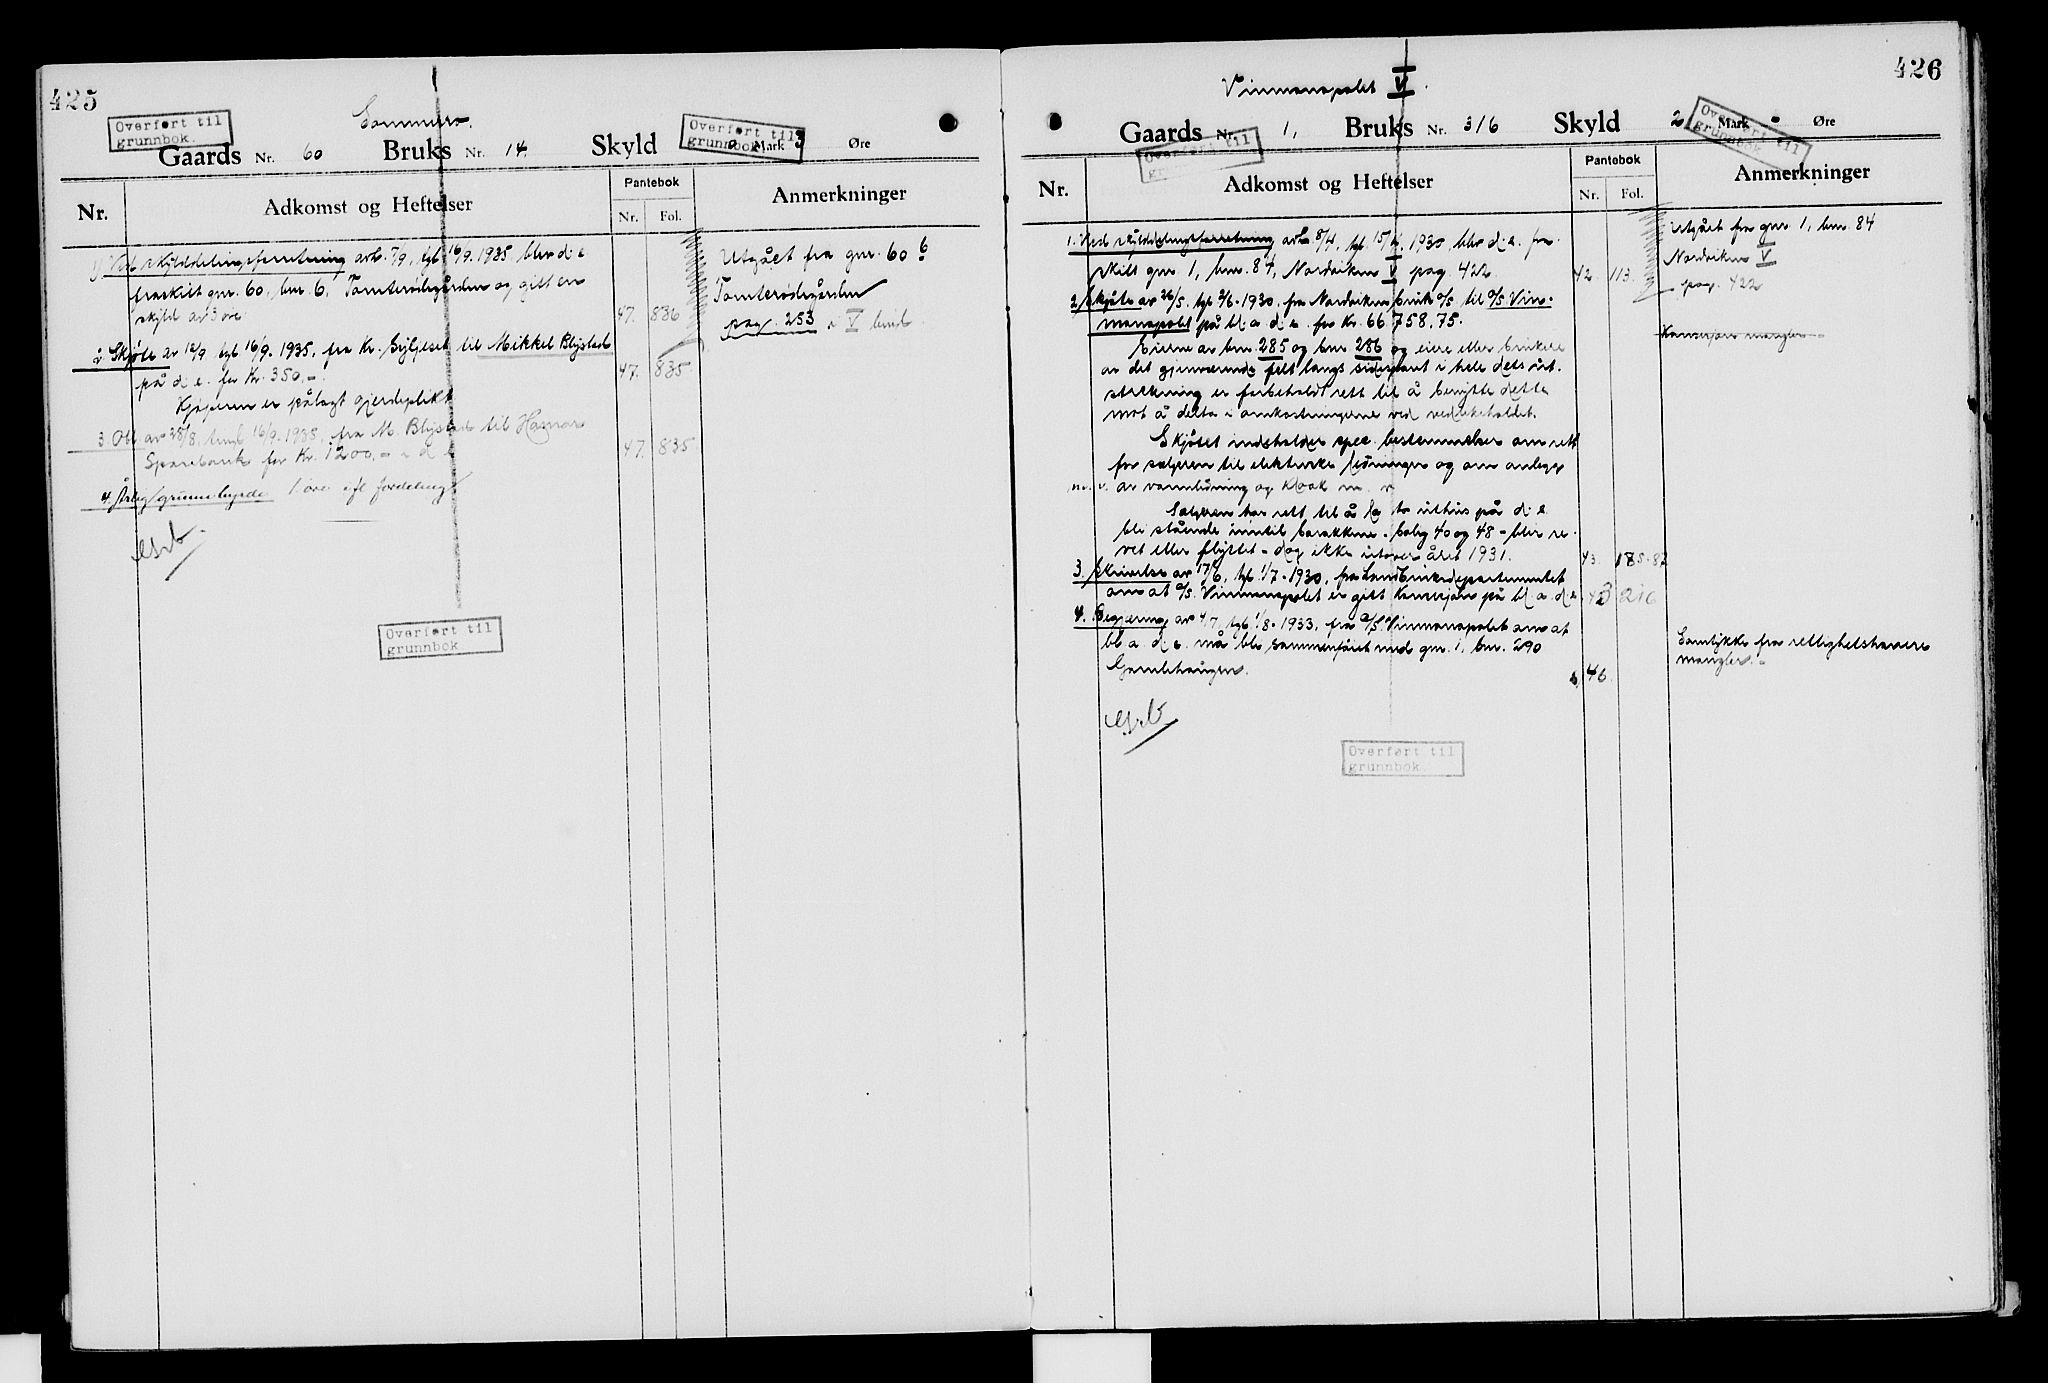 425
Overført til
grunnbok
Sommero.
Overført til
grunnbok
Gaards Nr. 60 Bruks Nr. 14. Skyld 0 Mark 3 Øre
Nr.
Adkomst og Heftelser
Pantebok
Nr. Fol.
Anmerkninger
1) Ved skylddelingsforretning avh. 7/9, tgl. 16/9. 1935 blev d: e
fraskilt gnr. 60, bnr. 6, Tomterødegården og gitt en
skyld av 3 øre. 47. 836
2. Skjøte av 12/9 tgl 16/9. 1935, fra Kr. til Mikkel Blystad
på d: e. for Kr. 350,-. 47. 835
Kjøperen er pålagt gjerdeplikt
3. Obl av 28/8, tingl 16/9. 1935, fra M. Blystad til Hamar
Sparebank for Kr. 1200,- i d: e 47. 835
4. Årlig grunnbyrde 1 øre efl fordeling
Utgået fra gnr. 60 6
Tomterødegården
pag. 253 i V bind.
Overført til
grunnbok
426
Vinmonopolet V.
Gaards Nr. 1, Bruks Nr. 316 Skyld 2 Mark - Øre
Overført til
grunnbok
Overført til
Nr.
Adkomst og Heftelser
Pantebok
Nr. Fol.
Anmerkninger
1. Ved skylddelingsforretning avh. 8/4, tgl. 15/4, 1930 blev d: e. fra-
skilt gnr. 1, bnr. 84, Nordviken V pag. 422. 42. 113.
2. Skjøte av 26/5. tgl 2/6. 1930, fra Nordvikens bruk a/s til a/s Vin-
monopolet på bl: a. d: e. for Kr. 66.758,75.
Eierne av bnr. 285 og bnr 286 og eiere eller brukere
av det gjenværende felt langs sidesporet i hele dets ut-
strekning er forbeholdt rett til å benytte dette
mot å delta i omkostningerne ved vedlikeholdet.
Skjøtet indeholder spec. bestemmelser om rett
for sælgeren til elektriske ledninger og om anlegg
m. v. av vannledning og kloak m. v
Sælgeren har rett til å la to uthus på d: e
bli stående inntil barakkene - bolig 40 og 48 - blir re-
vet eller flyttet - dog ikke utover året 1931. 43. 185-87
3. Skrivelse av 17/6, tgl. 1/7. 1930, fra Landbruksdepartementet
om at a/s. Vinmonopolet er gitt konsesjon på bl. a. d: e 43 216
4. Begjæring av 4/7, tgl. 1/8. 1933, fra a/s. Vinmonopolet om at
bl a. d: e. må bli sammenføiet med gnr. 1, bnr. 290
Gamlehaugen. 46.
Utgået fra gnr. 1, bnr. 84
Nordviken V
pag. 422
Konsesjon mangler.
Samtykke fra rettighetshavere
mangler.-
Overført til
grunnbok.